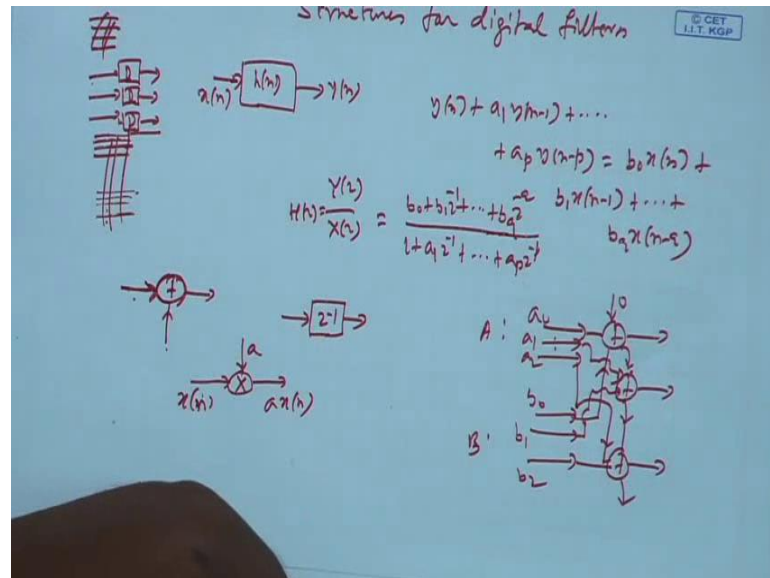 Structures for digital filters
© CET
I.I.T. KGP
D
D
D
x(n)
h(n)
y(n)
y(n) + a1 y(n-1) + ....
+ ap y(n-p) = b0 x(n) +
b1 x(n-1) + ... +
bq x(n-q)
H(z) = Y(z)/X(z) = b0 + b1 z^-1 + ... + bq z^-q / 1 + a1 z^-1 + ... + ap z^-p
+
z^-1
a
x(n)
X
a x(n)
A :
a0
a1
a2
0
+
+
B :
b0
b1
b2
+